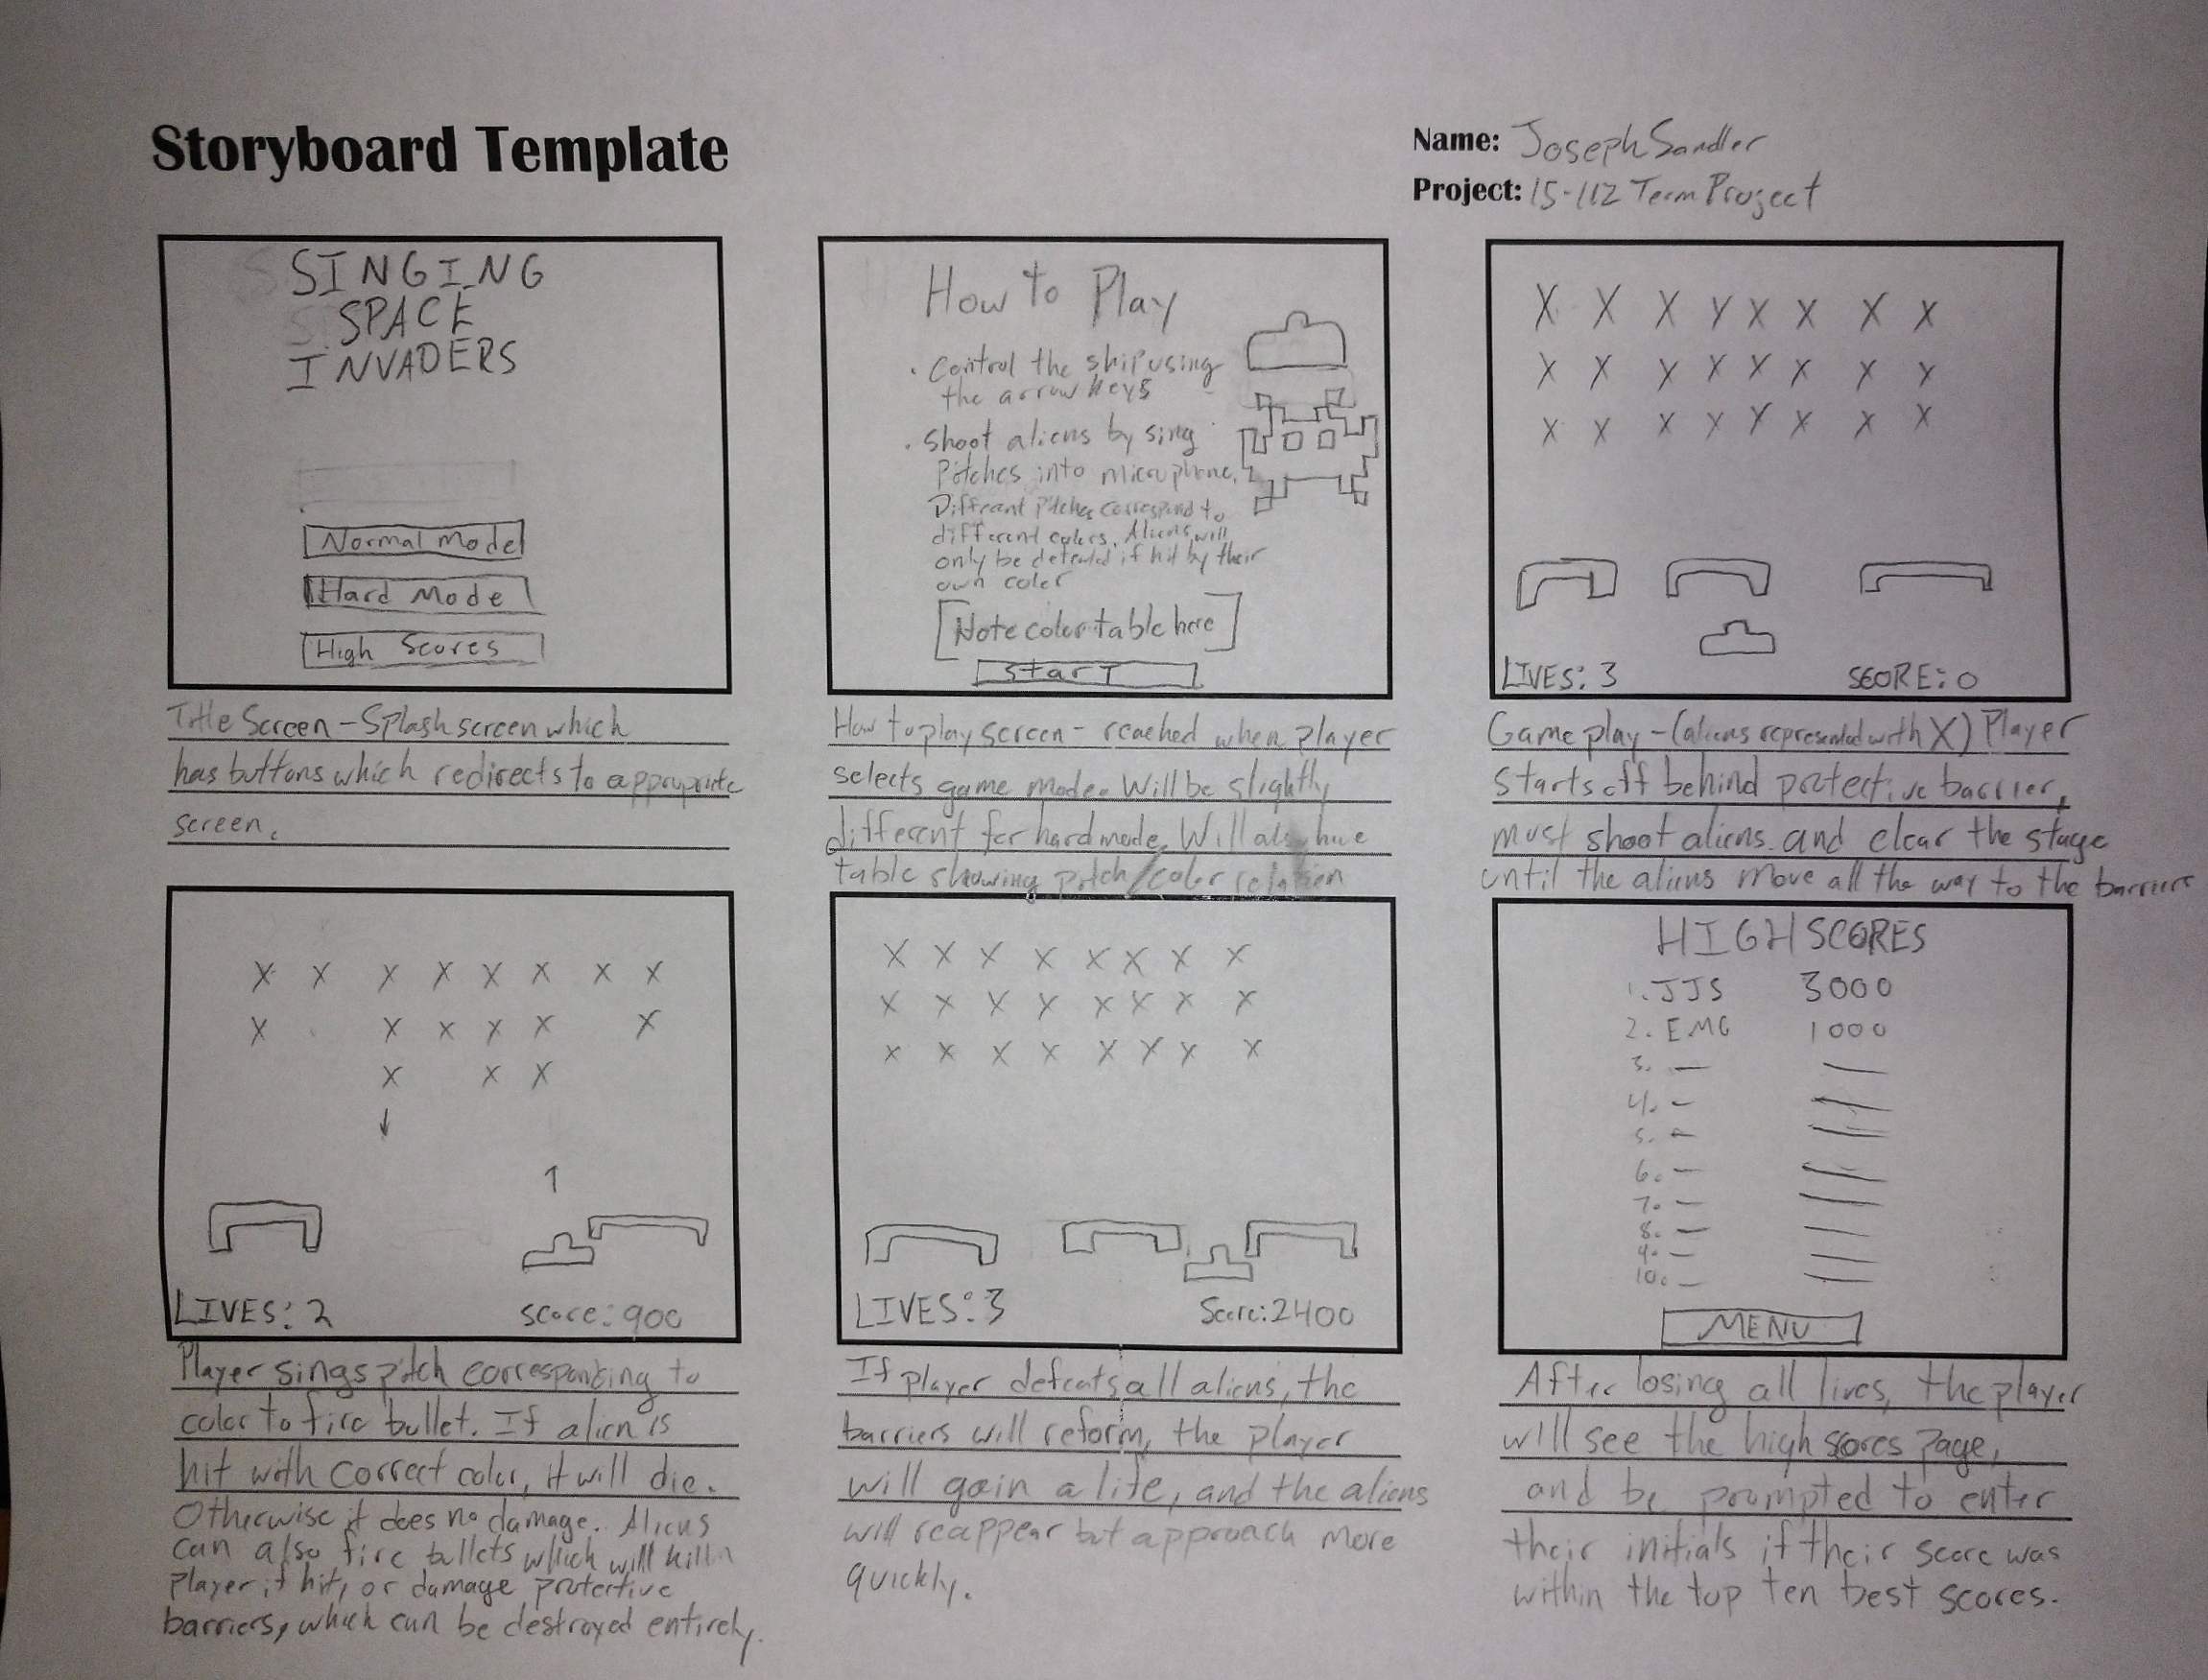 Storyboard Template
Name: Joseph Sandler
Project: 15-112 Term Project
SINGING
SPACE
INVADERS
Normal Mode
Hard Mode
High Scores
Title Screen - Splash screen which
has buttons which redirects to appropriate
screen.
How to Play
• Control the ship using
the arrow keys
• Shoot aliens by sing
pitches into microphone.
Different pitches correspond to
different colors. Aliens will
only be defeated if hit by their
own color
[Note color table here]
Start
How to play screen - reached when player
selects game mode. Will be slightly
different for hard mode. Will also have
table showing pitch/color relation
X X X X X X X X
X X X X X X X X
X X X X X X X X
LIVES: 3 SCORE: 0
Gameplay - (aliens represented with X) Player
starts off behind protective barrier,
must shoot aliens and clear the stage
until the aliens move all the way to the barriers
X X X X X X X X
X X X X X X
X X X
LIVES: 2 score: 900
Player sings pitch corresponding to
color to fire bullet. If alien is
hit with correct color, it will die.
Otherwise it does no damage. Aliens
can also fire bullets which will kill
player if hit, or damage protective
barriers, which can be destroyed entirely.
X X X X X X X X
X X X X X X X X
X X X X X X X X
LIVES: 3 Score: 2400
If player defeats all aliens, the
barriers will reform, the player
will gain a life, and the aliens
will reappear but approach more
quickly.
HIGH SCORES
1. JJS 3000
2. EMG 1000
3. — —
4. — —
5. — —
6. — —
7. — —
8. — —
9. — —
10. — —
MENU
After losing all lives, the player
will see the high scores page,
and be prompted to enter
their initials if their score was
within the top ten best scores.